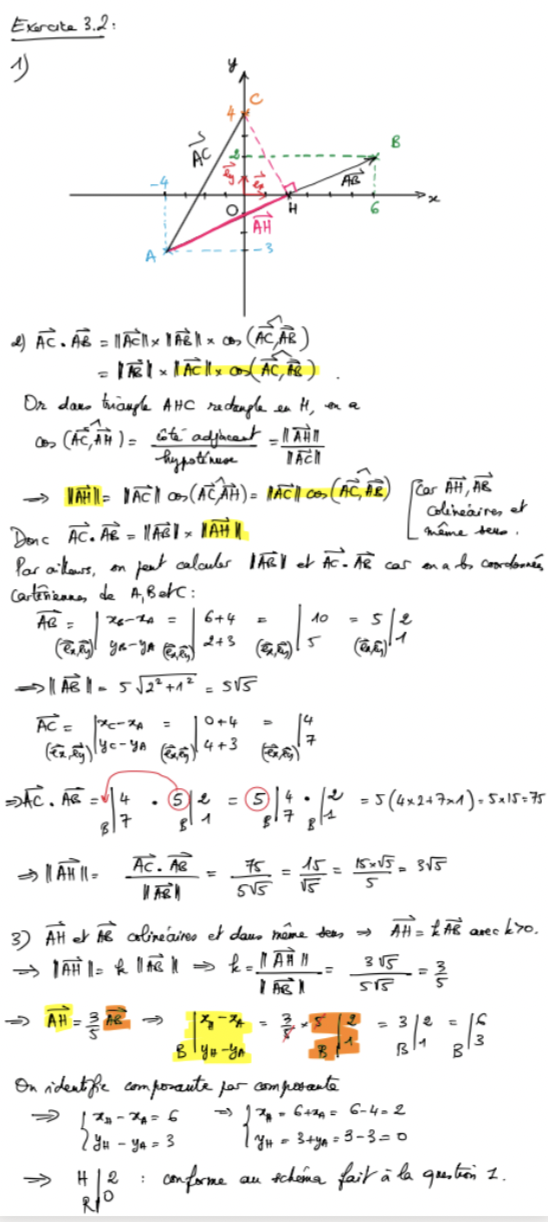 Exercice 3.2 :
1)
y
4 C
AC
2 B
ey ex AB
-4
O H 6 x
AH
A -3
2) AC . AB = ||AC|| x ||AB|| x cos (AC, AB)
= ||AB|| x ||AC|| x cos (AC, AB) .
Or dans triangle AHC rectangle en H, on a
cos (AC, AH) = côté adjacent / hypoténuse = ||AH|| / ||AC||
⇒ ||AH|| = ||AC|| cos (AC, AH) = ||AC|| cos (AC, AB) [car AH, AB
colinéaires et
même sens.
Donc AC . AB = ||AB|| x ||AH||
Par ailleurs, on peut calculer ||AB|| et AC . AB car on a les coordonnées
cartésiennes de A, B et C :
AB = | xB - xA = | 6+4 = | 10 = 5 | 2
(ex,ey) | yB - yA (ex,ey) | 2+3 (ex,ey) | 5 (ex,ey) | 1
⇒ ||AB|| = 5 √(2² + 1²) = 5√5
AC = | xC - xA = | 0+4 = | 4
(ex,ey) | yC - yA (ex,ey) | 4+3 (ex,ey) | 7
⇒ AC . AB = | 4 . 5 | 2 = 5 | 4 . | 2 = 5 (4x2 + 7x1) = 5x15 = 75
B | 7 B | 1 B | 7 B | 1
⇒ ||AH|| = AC . AB / ||AB|| = 75 / 5√5 = 15 / √5 = 15x√5 / 5 = 3√5
3) AH et AB colinéaires et dans même sens ⇒ AH = k AB avec k>0.
⇒ ||AH|| = k ||AB|| ⇒ k = ||AH|| / ||AB|| = 3√5 / 5√5 = 3/5
⇒ AH = 3/5 AB ⇒ | xH - xA = 3/5 x 5 | 2 = 3 | 2 = | 6
B | yH - yA B | 1 B | 1 B | 3
On identifie composante par composante
⇒ { xH - xA = 6 ⇒ { xH = 6 + xA = 6 - 4 = 2
yH - yA = 3 yH = 3 + yA = 3 - 3 = 0
⇒ H | 2 : conforme au schéma fait à la question 1.
R | 0